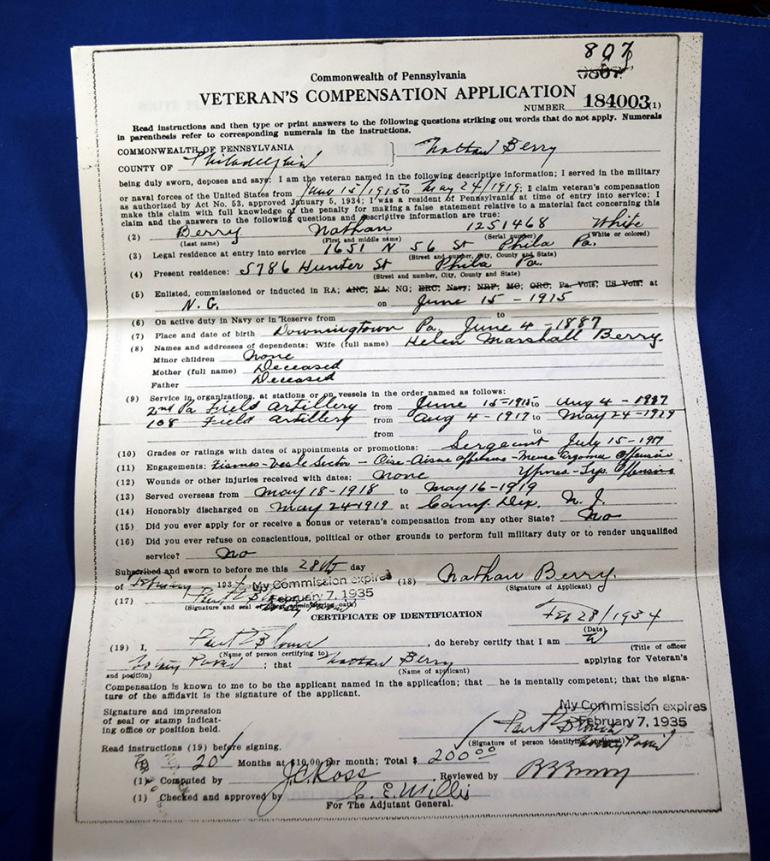 807
Commonwealth of Pennsylvania
VETERAN'S COMPENSATION APPLICATION
NUMBER 184003 (1)
Read instructions and then type or print answers to the following questions striking out words that do not apply. Numerals
in parenthesis refer to corresponding numerals in the instructions.
COMMONWEALTH OF PENNSYLVANIA
COUNTY OF Philadelphia } Nathan Berry
being duly sworn, deposes and says: I am the veteran named in the following descriptive information; I served in the military
or naval forces of the United States from June 15/1915 to May 24/1919; I claim veteran's compensation
as authorised by Act No. 53, approved January 5, 1934; I was a resident of Pennsylvania at time of entry into service; I
make this claim with full knowledge of the penalty for making a false statement relative to a material fact concerning this
claim and the answers to the following questions and descriptive information are true:
(2) Berry Nathan 1251468 White
(Last name) (First and middle name) (Serial number) White or colored)
(3) Legal residence at entry into service 1651 N 56 St Phila Pa.
(Street and number, City, County and State)
(4) Present residence: 5786 Hunter St Phila Pa.
(Street and number, City, County and State)
(5) Enlisted, commissioned or inducted in RA; ANC; NA; NG; ERC; Navy; NRF; MC; ORC; Pa. Vols; US Vols; at
N.G. on June 15-1915
(6) On active duty in Navy or in Reserve from to
(7) Place and date of birth Downingtown Pa. June 4-1887
(8) Names and addresses of dependents: Wife (full name) Helen Marshall Berry.
Minor children None
Mother (full name) Deceased
Father Deceased
(9) Service in organizations, at stations or on vessels in the order named as follows:
2nd Pa Field Artillery from June 15-1915 to Aug 4-1917
108 Field Artillery from Aug 4-1917 to May 24-1919
from to
(10) Grades or ratings with dates of appointments or promotions: Sergeant July 15-1917
(11) Engagements: Fismes-Vesle Sector - Oise-Aisne Offensive - Meuse Argonne Offensive
Ypres-Lys Offensive
(12) Wounds or other injuries received with dates: None
(13) Served overseas from May 18-1918 to May 16-1919
(14) Honorably discharged on May 24-1919 at Camp Dix, N.J.
(15) Did you ever apply for or receive a bonus or veteran's compensation from any other State? No
(16) Did you ever refuse on conscientious, political or other grounds to perform full military duty or to render unqualified
service? No
Subscribed and sworn to before me this 28th day
of February 1934 My Commission expires
February 7, 1935
(17) (Signature and seal of
(18) Nathan Berry.
(Signature of Applicant)
CERTIFICATE OF IDENTIFICATION Feb 28/1934
(Date)
(19) I, , do hereby certify that I am a
(Name of person certifying to) (Title of officer
: that Nathan Berry applying for Veteran's
and position) (Name of applicant)
Compensation is known to me to be the applicant named in the application; that he is mentally competent; that the signa-
ture of the affidavit is the signature of the applicant.
Signature and impression
of seal or stamp indicat-
ing office or position held.
My Commission expires
February 7, 1935
(Signature of person identifying applicant)
Read instructions (19) before signing.
20 Months at $10.00 per month; Total $ 200.00
(1) Computed by J.C. Ross Reviewed by
(1) Checked and approved by C. E. Willis
For The Adjutant General.